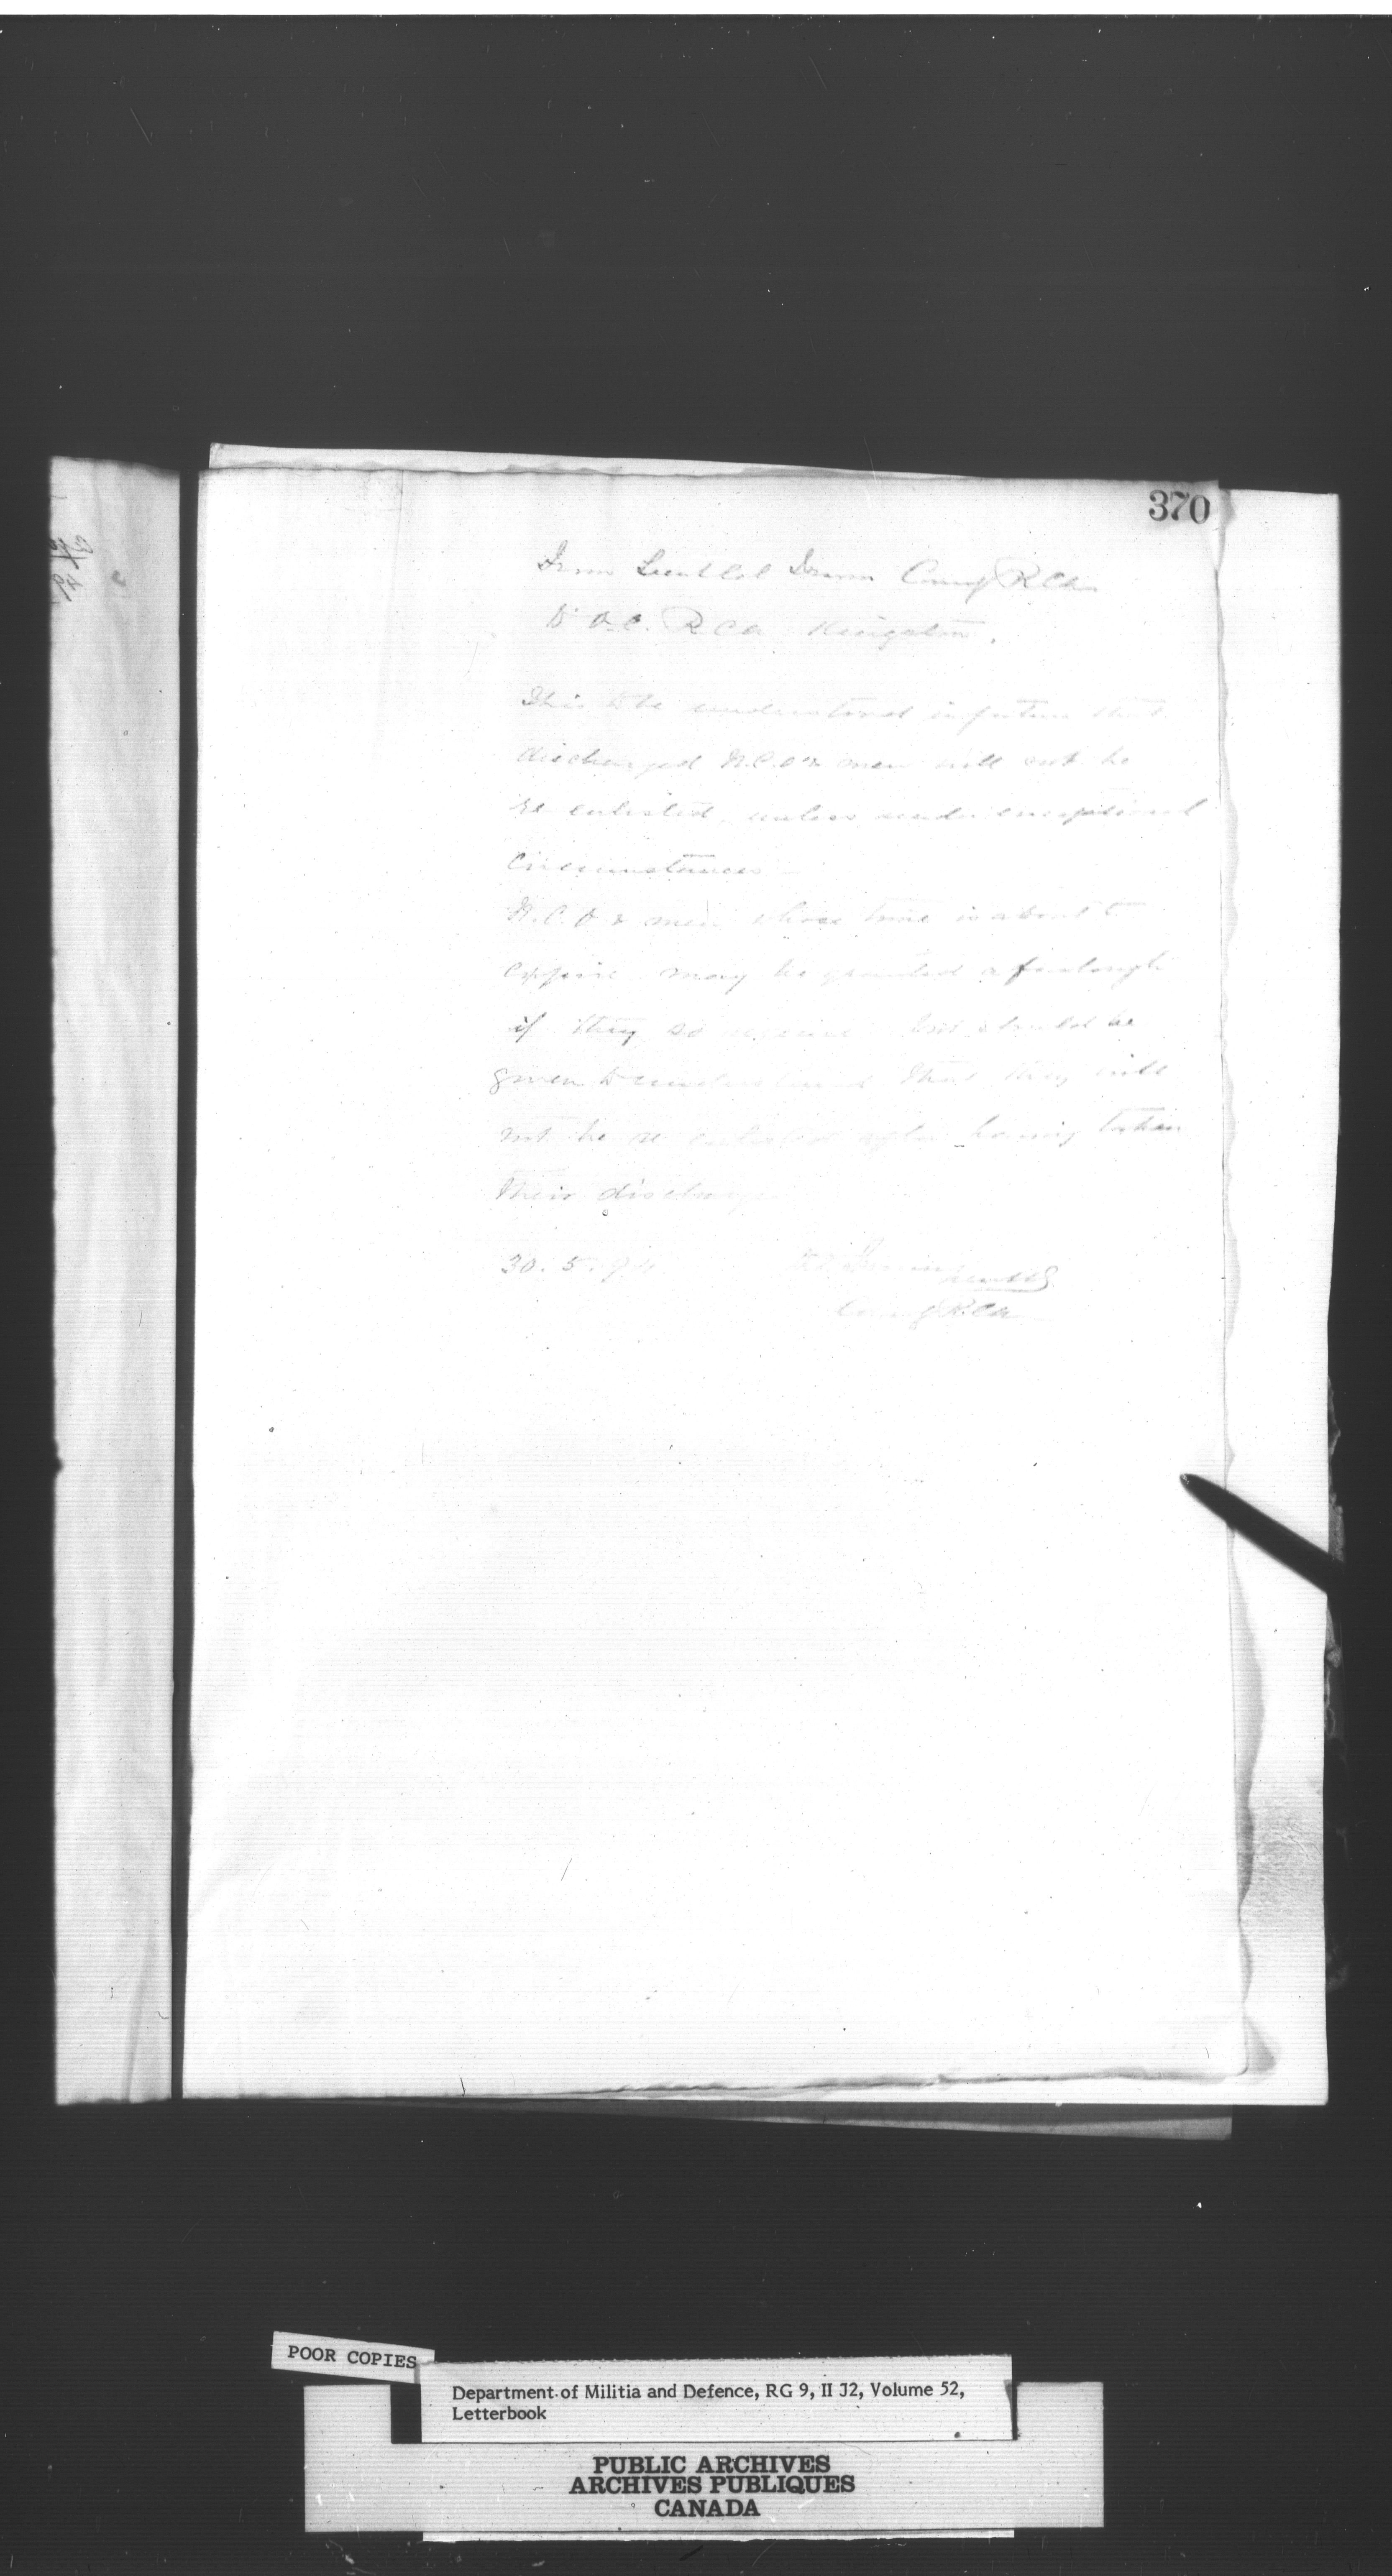 370
From Lieut Col Irwin Comg RCA
To O.C. RCA Kingston.
This to be understood in future that
discharged N.C.O & men will not be
re enlisted unless under exceptional
circumstances
N.C.O & men whose time is about to
expire may be granted a furlough
if they so but should be
given to understand that they will
not be re enlisted after having taken
their discharge
30.5.94
Irwin Lt Col
Comg RCA
POOR COPIES
Department of Militia and Defence, RG 9, II J2, Volume 52,
Letterbook
PUBLIC ARCHIVES
ARCHIVES PUBLIQUES
CANADA